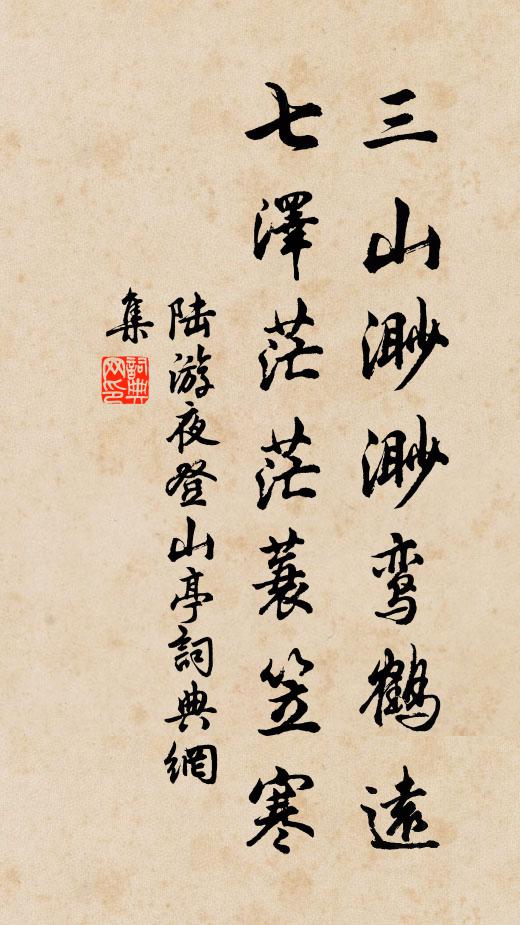 三山渺渺鸾鹤远
七澤茫茫蓑笠寒
陆游夜登山亭詞典網
集
詞典网印